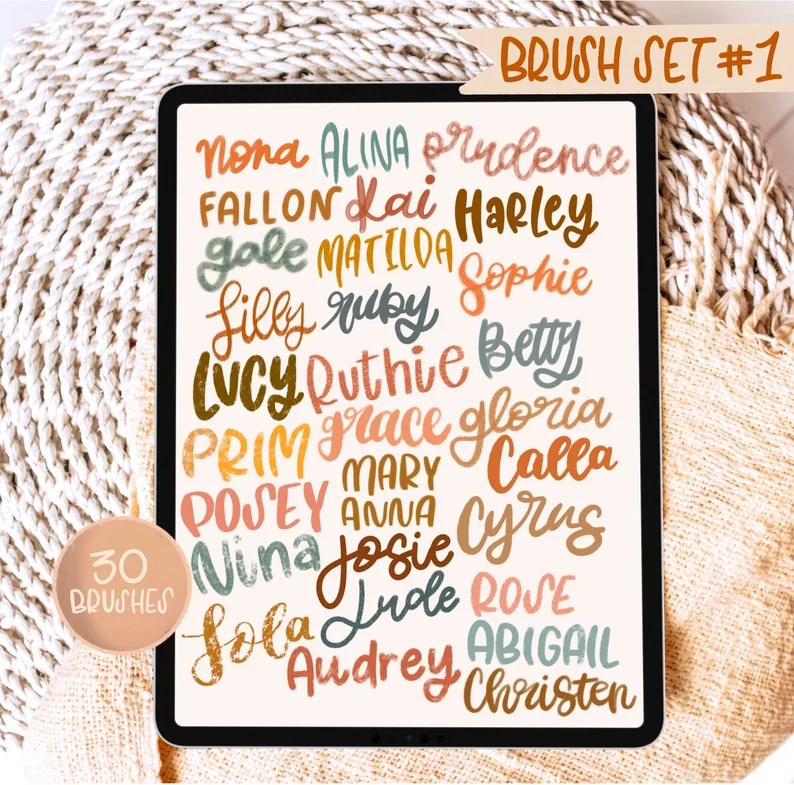 BRUSH SET #1
nona ALINA prudence
FALLON Kai Harley
gale MATILDA Sophie
Lilly ruby
Betty
LUCY Ruthie
grace gloria
PRIM Calla
MARY
POSEY ANNA Cyrus
Nina Josie
30
BRUSHES
Jude ROSE
Lola ABIGAIL
Audrey Christen